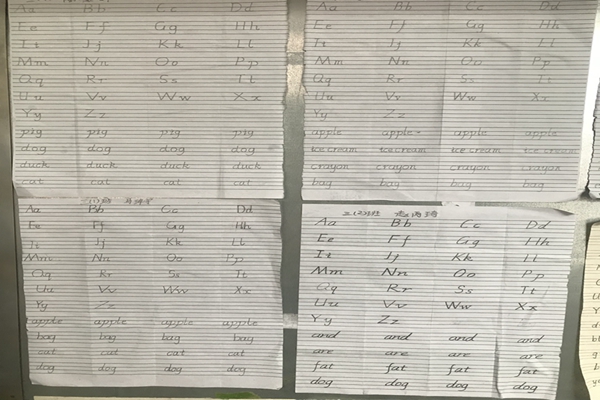 Aa Bb Cc Dd
Ee Ff Gg Hh
It Jj Kk Ll
Mm Nn Oo Pp
Qq Rr Ss Tt
Uu Vv Ww Xx
Yy Zz
pig pig pig pig
dog dog dog dog
duck duck duck duck
cat cat cat cat
Aa Bb Cc Dd
Ee Ff Gg Hh
It Jj Kk Ll
Mm Nn Oo Pp
Qq Rr Ss It
Uu Vv Ww Xx
Yy Zz
apple apple apple apple
ice cream ice cream ice cream ice cream
crayon crayon crayon crayon
bag bag bag bag
Aa Bb Cc Dd
Ee Ff Gg Hh
It Jj Kk Ll
Mm Nn Oo Pp
Qq Rr Ss Tt
Uu Vv Ww Xx
Yy Zz
apple apple apple apple
bag bag bag bag
cat cat cat cat
dog dog dog dog
三(2)班
Aa Bb Cc Dd
Ee Ff Gg Hh
It Jj Kk Ll
Mm Nn Oo Pp
Qq Rr Ss Tt
Uu Vv Ww Xx
Yy Zz
and and and and
are are are are
fat fat fat fat
dog dog dog dog